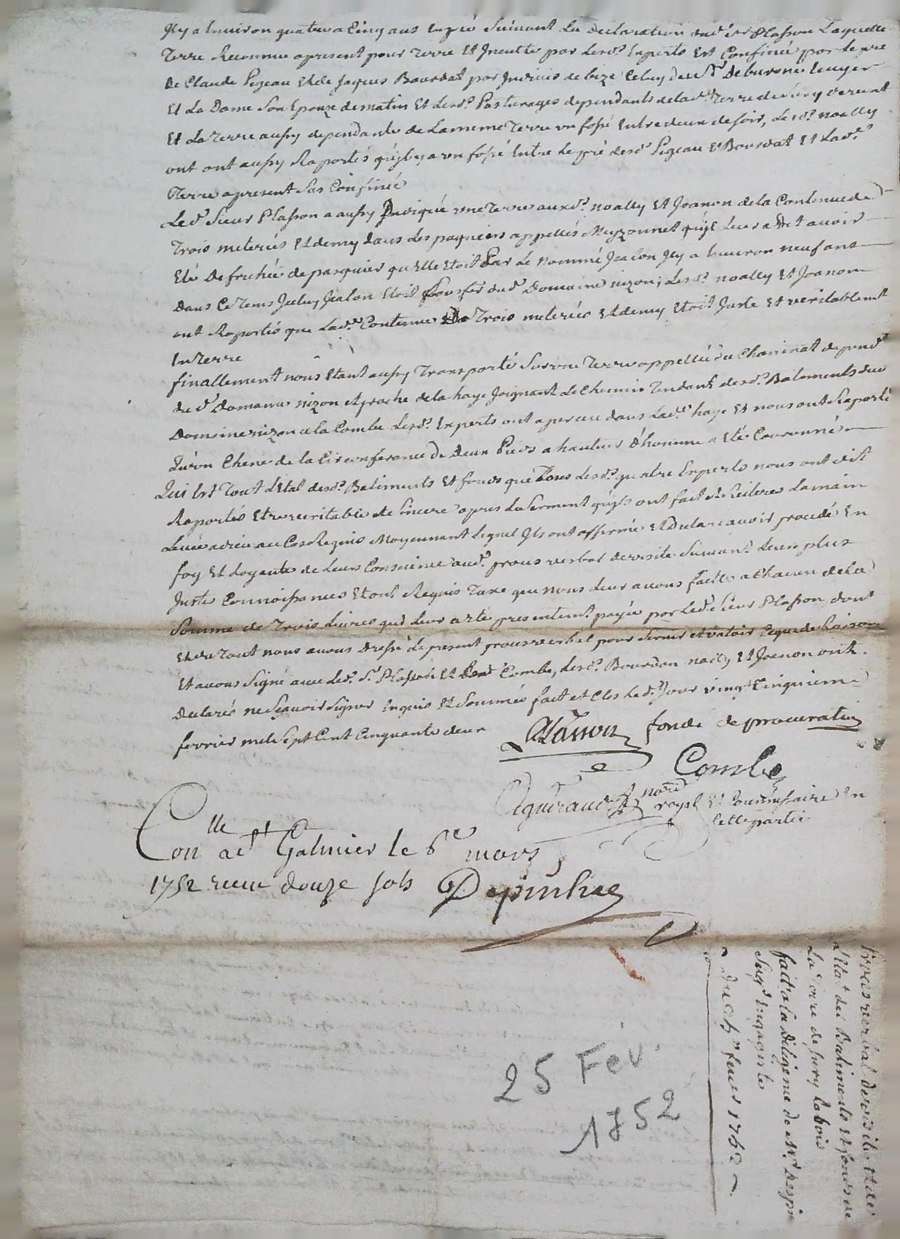 Il y a Environ quatre a Cinq ans En pré Suivant La declaration dud. sr Plasson Laquelle
Terre Reconnue apresent pour Terre Et Inculte par Lesd. Experts Est Confinée par le pré
De Claude Pegeau Et de Jaques Bourdat par
Et La Dame Son Epouze de matin Et Lesd. Pasturages dependants de lad. Terre de Sury
Et La Terre aussy dependante de La meme Terre un fossé Entre deux de soir, Lesd. noally
ont ont aussy Raportés qu'il y a un fossé Entre Le pré desd. Pegeau Et Bourdat Et Lad.
Terre apresent Sus Confinée
Le d. Sieur Plasson a aussy Indiqué une Terre auxd. noally Et Joanon de la Contenue de
Trois meterées Et demy dans Les paquiers appellés Meyzonnet qu'il Leur a dit avoir
Eté Defrichée de pasquier qu'Elle Etoit Par Le nommé Jealon Il y a Environ neuf ans
dans Ce Tems Icelluy Jealon Etoit dud. Domaine nizon, Lesd. noally Et Joanon
ont Raportés que Lad. Contenue De Trois meterées Et demy Etoit Juste Et veritablement
In Terre
finallement nous Etant aussy Transporté Sur une Terre appellée du Chaninat depend.
du d. Domaine nizon Et proche de la haye Joignant Le Chemin Tendant desd. Batiments du
Domaine nizon a la Combe Lesd. Experts ont aperçu dans Lad. haye Et nous ont Raporté
qu'un Chene de la Circonference De Deux Pieds a hauteur D'homme a Eté Couronné
Qui Est Tout L'Etat desd. Batiments Et fonds que Tous Lesd. quatre Experts nous ont dit
Raportés Etre veritable Et Sincere apres Le Serment qu'ils ont fait Et Reiteres La main
Levée a dieu au Cas Requis Moyennant Lequel Ils ont affirmé Et Declaré avoir procedé En
foy Et Loyauté de Leurs Conscience aud. procès verbal de visite Suivant Leur plus
Justes Connoissances Et ont Requis Taxe que nous Leur avons faitte a Chacun de la
Somme de Trois Livres qui Leur a eté presentement payée par Led. Sieur Plasson dont
Et du Tout nous avons Dressé Le present procès verbal pour Servir et valoir Ce que de Raison
Et avons Signé avec Led. Sr Plasson Et Combe, Lesd. Bourdon noally Et Joanon ont
Declarés ne Sçavoir Signer Enquis Et Sommés fait et Clos Led. Jour vingt Cinquiem
fevrier mil Sept Cent Cinquante deux
Plasson fondé de procuration
Combe
notre
royal Et Commissaire En
Cette partie
Con
lle
a St Galmier le 6e mars
1752 receu douze sols Depinhac
Procès verbal de visitte Et de
L'Etat des Batiments Et fonds de
La Terre de Sury Le bois
fait a la Diligence de Mr
Seigr Engagiste
Du 25e fevrier 1752
25 Fév.
1752